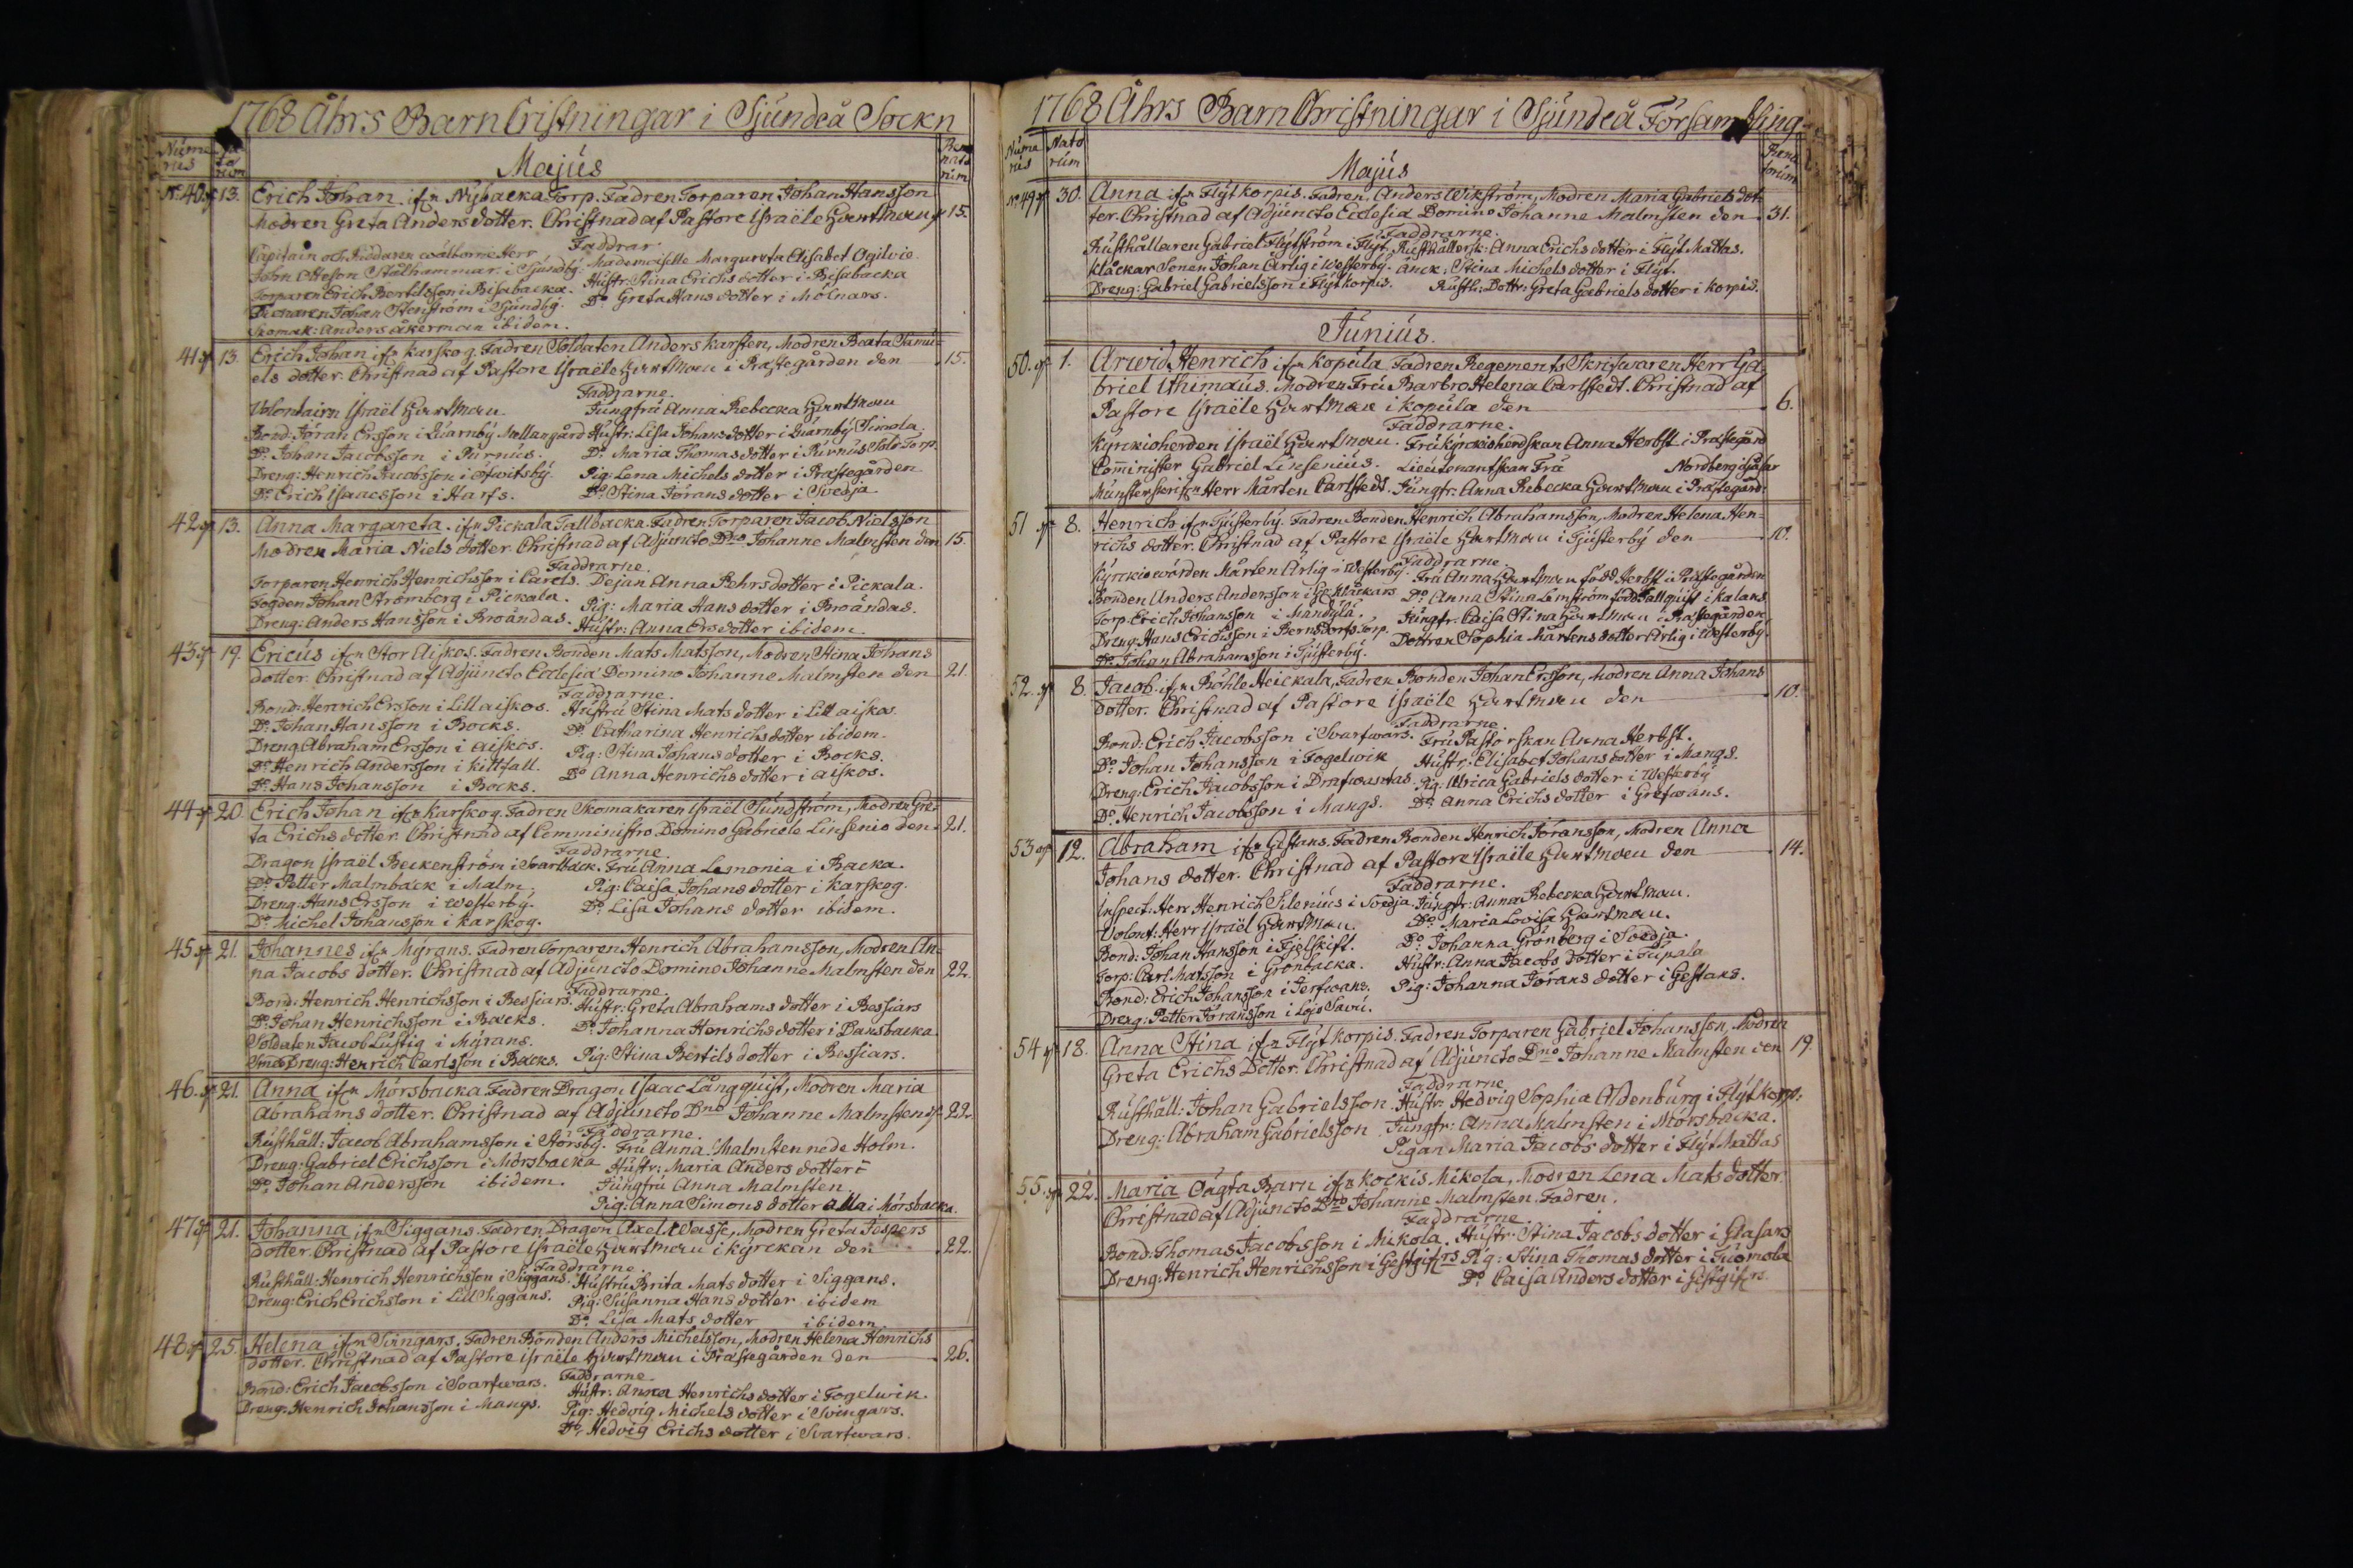 1768 Åhrs Barn Cristningar i Sjundeå Sockn
Nume
rus
Majus
Rena
nato
rum
No. 40. 13. Erich Johan ifrn Nybacka Torp. Fadren Torparen Johan Hansson
Modren Greta Anders dotter. Christnad af Pastore Israële Hartman 15.
Faddrar.
Capitain och Riddaren wälborne Herr
John Otteson Stålhammar i Sjundby. Mademoiselle Margareta Elisabet Ogilvie.
Torparen Erich Bertilsson i Bisabacka. Hustr: Stina Erichs dotter i Bisabacka
Johan Stenström i Sjundby. Do Greta Hans dotter i Mölnars.
Skomak: Anders åkerman ibidem.
41 13. Erich Johan ifrn Karskog. Fadren Soldaten Anders Karsten, Modren Beata Samu=
els dotter. Christnad af Pastore Israële Hartman i Prästegården den 15.
Faddrarne.
Volontairn Israël Hartman Jungfru Anna Rebecka Hartman
Bond: Jöran Ersson i Quarnby Mellangård Hustr: Lisa Johans dotter i Quarnby Simola.
Do Johan Jacobsson i Purnus. Do Maria Thomas dotter i Purnus Torp.
Dreng: Henrich Jacobsson i Ofwitsby. Pig: Lena Michels dotter i Prästegården.
Do Erich Isaacsson i Harfs. Do Stina Jörans dotter i Svedja
42 13. Anna Margareta. ifrn Pickala Tallbacka. Fadren Torparen Jacob Nielsson
Modren Maria Niels dotter. Christnad af Adjuncto Dno Johanne Malmsten den 15.
Faddrarne.
Torparen Henrich Henrichsson i Carels. Dejan Anna Pehrs dotter i Pickala.
Fogden Johan Strömberg i Pickala. Pig: Maria Hans dotter i Broändas.
Dreng: Anders Hansson i Broändas. Hustr: Anna Ers dotter ibidem.
43 19. Ericus ifrn Stor Aiskos. Fadren Bonden Mats Matsson, Modren Stina Johans
dotter. Christnad af Adjuncto Ecclesiæ Domino Johanne Malmsten den 21.
Faddrarne.
Bond: Henrich Ersson i Lill aiskos. Hustru Stina Mats dotter i Lill aiskos.
Do Johan Hansson i Bocks. Do Catharina Henrichs dotter ibidem.
Dreng Abraham Ersson i aiskos. Pig: Stina Johans dotter i Bocks.
Do Henrich Andersson i Kittfall. Do Anna Henrichs dotter i aiskos.
Do Hans Johansson i Bocks.
44 20. Erich Johan ifrn Karskog. Fadren Skomakaren Israël Sundström, Modren Gre=
ta Erichs dotter. Christnad af Comministro Domino Gabriele Linsenio den 21.
Faddrarne.
Dragon Israël Beckenström i Svartback. Fru Anna Lemonia i Backa.
Do Petter Malmback i Malm. Pig: Caisa Johans dotter i Karskog.
Dreng: Hans Ersson i Westerby. Do Lisa Johans dotter ibidem.
Do Michel Johansson i Karskog.
45 21. Johannes ifrn Myrans. Fadren Torparen Henrich Abrahamsson, Modren An=
na Jacobs dotter. Christnad af Adjuncto Domino Johanne Malmsten den 22.
Faddrarne.
Bond: Henrich Henrichsson i Bessiars. Hustr: Greta Abrahams dotter i Bessiars
Do Johan Henrichsson i Backs. Do Johanna Henrichs dotter i Dansbacka
Soldaten Jacob Lustig i Myrans.
Dreng: Henrich Carlsson i Backs. Pig: Stina Bertils dotter i Bessiars.
46. 21. Anna ifrn Mörsbacka. Fadren Dragon Isaac Långquist, Modren Maria
Abrahams dotter. Christnad af Adjuncto Dno Johanne Malmsten 22.
Faddrarne.
Rusthåll: Jacob Abrahamsson i Störsby. Fru Anna Malmsten nede Holm.
Dreng: Gabriel Erichsson i Mörsbacka Hustr: Maria Anders dotter
Do Johan Andersson ibidem. Jungfru Anna Malmsten.
Pig: Anna Simons dotter alla i Mörsbacka.
47 21. Johanna ifrn Siggans. Fadren Dragon Axel Wasse, Modren Greta Jespers
dotter. Christnad af Pastore Israële Hartman i kyrckan den 22.
Faddrarne.
Rusthåll: Henrich Henrichsson i Siggans. Hustru Brita Mats dotter i Siggans.
Dreng: Erich Erichsson i Lill Siggans. Pig: Susanna Hans dotter ibidem
Do Lisa Mats dotter ibidem.
48 25. Helena ifrn Svingars. Fadren Bonden Anders Michelsson, Modren Helena Henrichs
dotter. Christnad af Pastore Israële Hartman i Prästegården den 26.
Faddrarne.
Bond: Erich Jacobsson i Svartwars. Hustr: Anna Henrichs dotter i Fogelwik.
Dreng: Henrich Johansson i Mangs. Pig: Hedvig Michels dotter i Svingars.
Do Hedvig Erichs dotter i Svartwars.
1768 Åhrs Barn Christningar i Sjundeå Försambling
Nume
rus
Nato
rum
Majus
Rena
torum
No. 49 30. Anna ifrn Flyt korpis. Fadren Anders Wikström, Modren Maria Gabriels dot
ter. Christnad af Adjuncto Ecclesiæ Domino Johanne Malmsten den 31.
Faddrarne.
Rusthållaren Gabriel Flytström i Flyt. Rusthållersk: Anna Erichs dotter i Flyt Mattas.
Klåckar Sonen Johan Ärlig i Westerby. Änck: Stina Michels dotter i Flyt.
Dreng: Gabriel Gabrielsson i Flyt korpis. Rusth: Dottr: Greta Gabriels dotter i korpis.
Junius.
50. 1. Arwid Henrich ifrn Kopula. Fadren Regements Skrifwaren Herr Ga
briel Ithimæus. Modren Fru Barbro Helena Carlstedt. Christnad af
Pastore Israële Hartman i Kopula den 6.
Faddrarne.
Kyrckioherden Israël Hartman. Fru kyrckioherdskan Anna Herbst i Prästegård
Cominister Gabriel Linsenius. Lieutenantskan Fru Nordberg i
Munsterskrifrn Herr Mårten Carlstedt. Jungfr: Anna Rebecka Hartman i Prästegård:
51 8. Henrich ifrn Tjusterby. Fadren Bonden Henrich Abrahamsson, Modren Helena Hen=
richs dotter. Christnad af Pastore Israële Hartman i Tjusterby den 10.
Faddrarne.
Kyrckiowärden Mårten Ärlig i Westerby. Fru Anna Hartman född Herbst i Prästegården
Bonden Anders Andersson i Do Anna Stina Lemström född Tallquist i Kalans
Torp: Erich Johansson i Mandula. Jungfr: Caisa Stina Hartman i Prästegården
Dreng: Hans Erichsson i Bernsdorfs Torp. Dottren Sophia Mårtens dotter Ärlig i Westerby.
Do Johan Abrahamsson i Tjusterby.
52. 8. Jacob ifrn Böhle Heickala, Fadren Bonden Johan Ersson, Modren Anna Johans
dotter. Christnad af Pastore Israële Hartman den 10.
Faddrarne.
Bond: Erich Jacobsson i Svartwars. Fru Pastorskan Anna Herbst.
Do Johan Johansson i Fogelwik Hustr: Elisabet Johans dotter i Mangs.
Dreng: Erich Jacobsson i Pig: Ulrica Gabriels dotter i Westerby
Do Henrich Jacobsson i Mangs. Do Anna Erichs dotter i Grefwans.
53 12. Abraham ifrn Gestans. Fadren Bonden Henrich Jöransson, Modren Anna
Johans dotter. Christnad af Pastore Israële Hartman den 14.
Faddrarne.
Inspect: Herr Henrich Silenius i Svedja. Jungfr: Anna Rebecka Hartman.
Volont: Herr Israël Hartman. Do Maria Lovisa Hartman.
Bond: Johan Hansson i Fjelskift. Do Johanna Grönberg i Svedja.
Torp: Carl Matsson i Grönbacka. Hustr: Anna Jacobs dotter i Tupala
Bond: Erich Johansson i Jerfwans. Pig: Johanna Jörans dotter i Gestans.
Dreng: Petter Jöransson i Lojo Savu.
54 18. Anna Stina ifrn Flyt korpis. Fadren Torparen Gabriel Johansson, Modren
Greta Erichs Dotter. Christnad af Adjuncto Dno Johanne Malmsten den 19.
Faddrarne
Rusthåll: Johan Gabrielsson. Hustr: Hedvig Sophia Aldenburg i Flyt korp:
Dreng: Abraham Gabrielsson Jungfr: Anna Malmsten i Mörsbacka.
Pigan Maria Jacobs dotter i Flyt Mattas
55. 22. Maria Oägta Barn ifrn Kockis Mikola, Modren Lena Mats dotter.
Christnad af Adjuncto Dno Johanne Malmsten. Fadren.
Faddrarne.
Bond: Thomas Jacobsson i Mikola. Hustr: Stina Jacobs dotter i Glasars
Dreng: Henrich Henrichsson i Gestgifrs Pig: Stina Thomas dotter i Tuomola
Do Caisa Anders dotter i Gestgifrs.